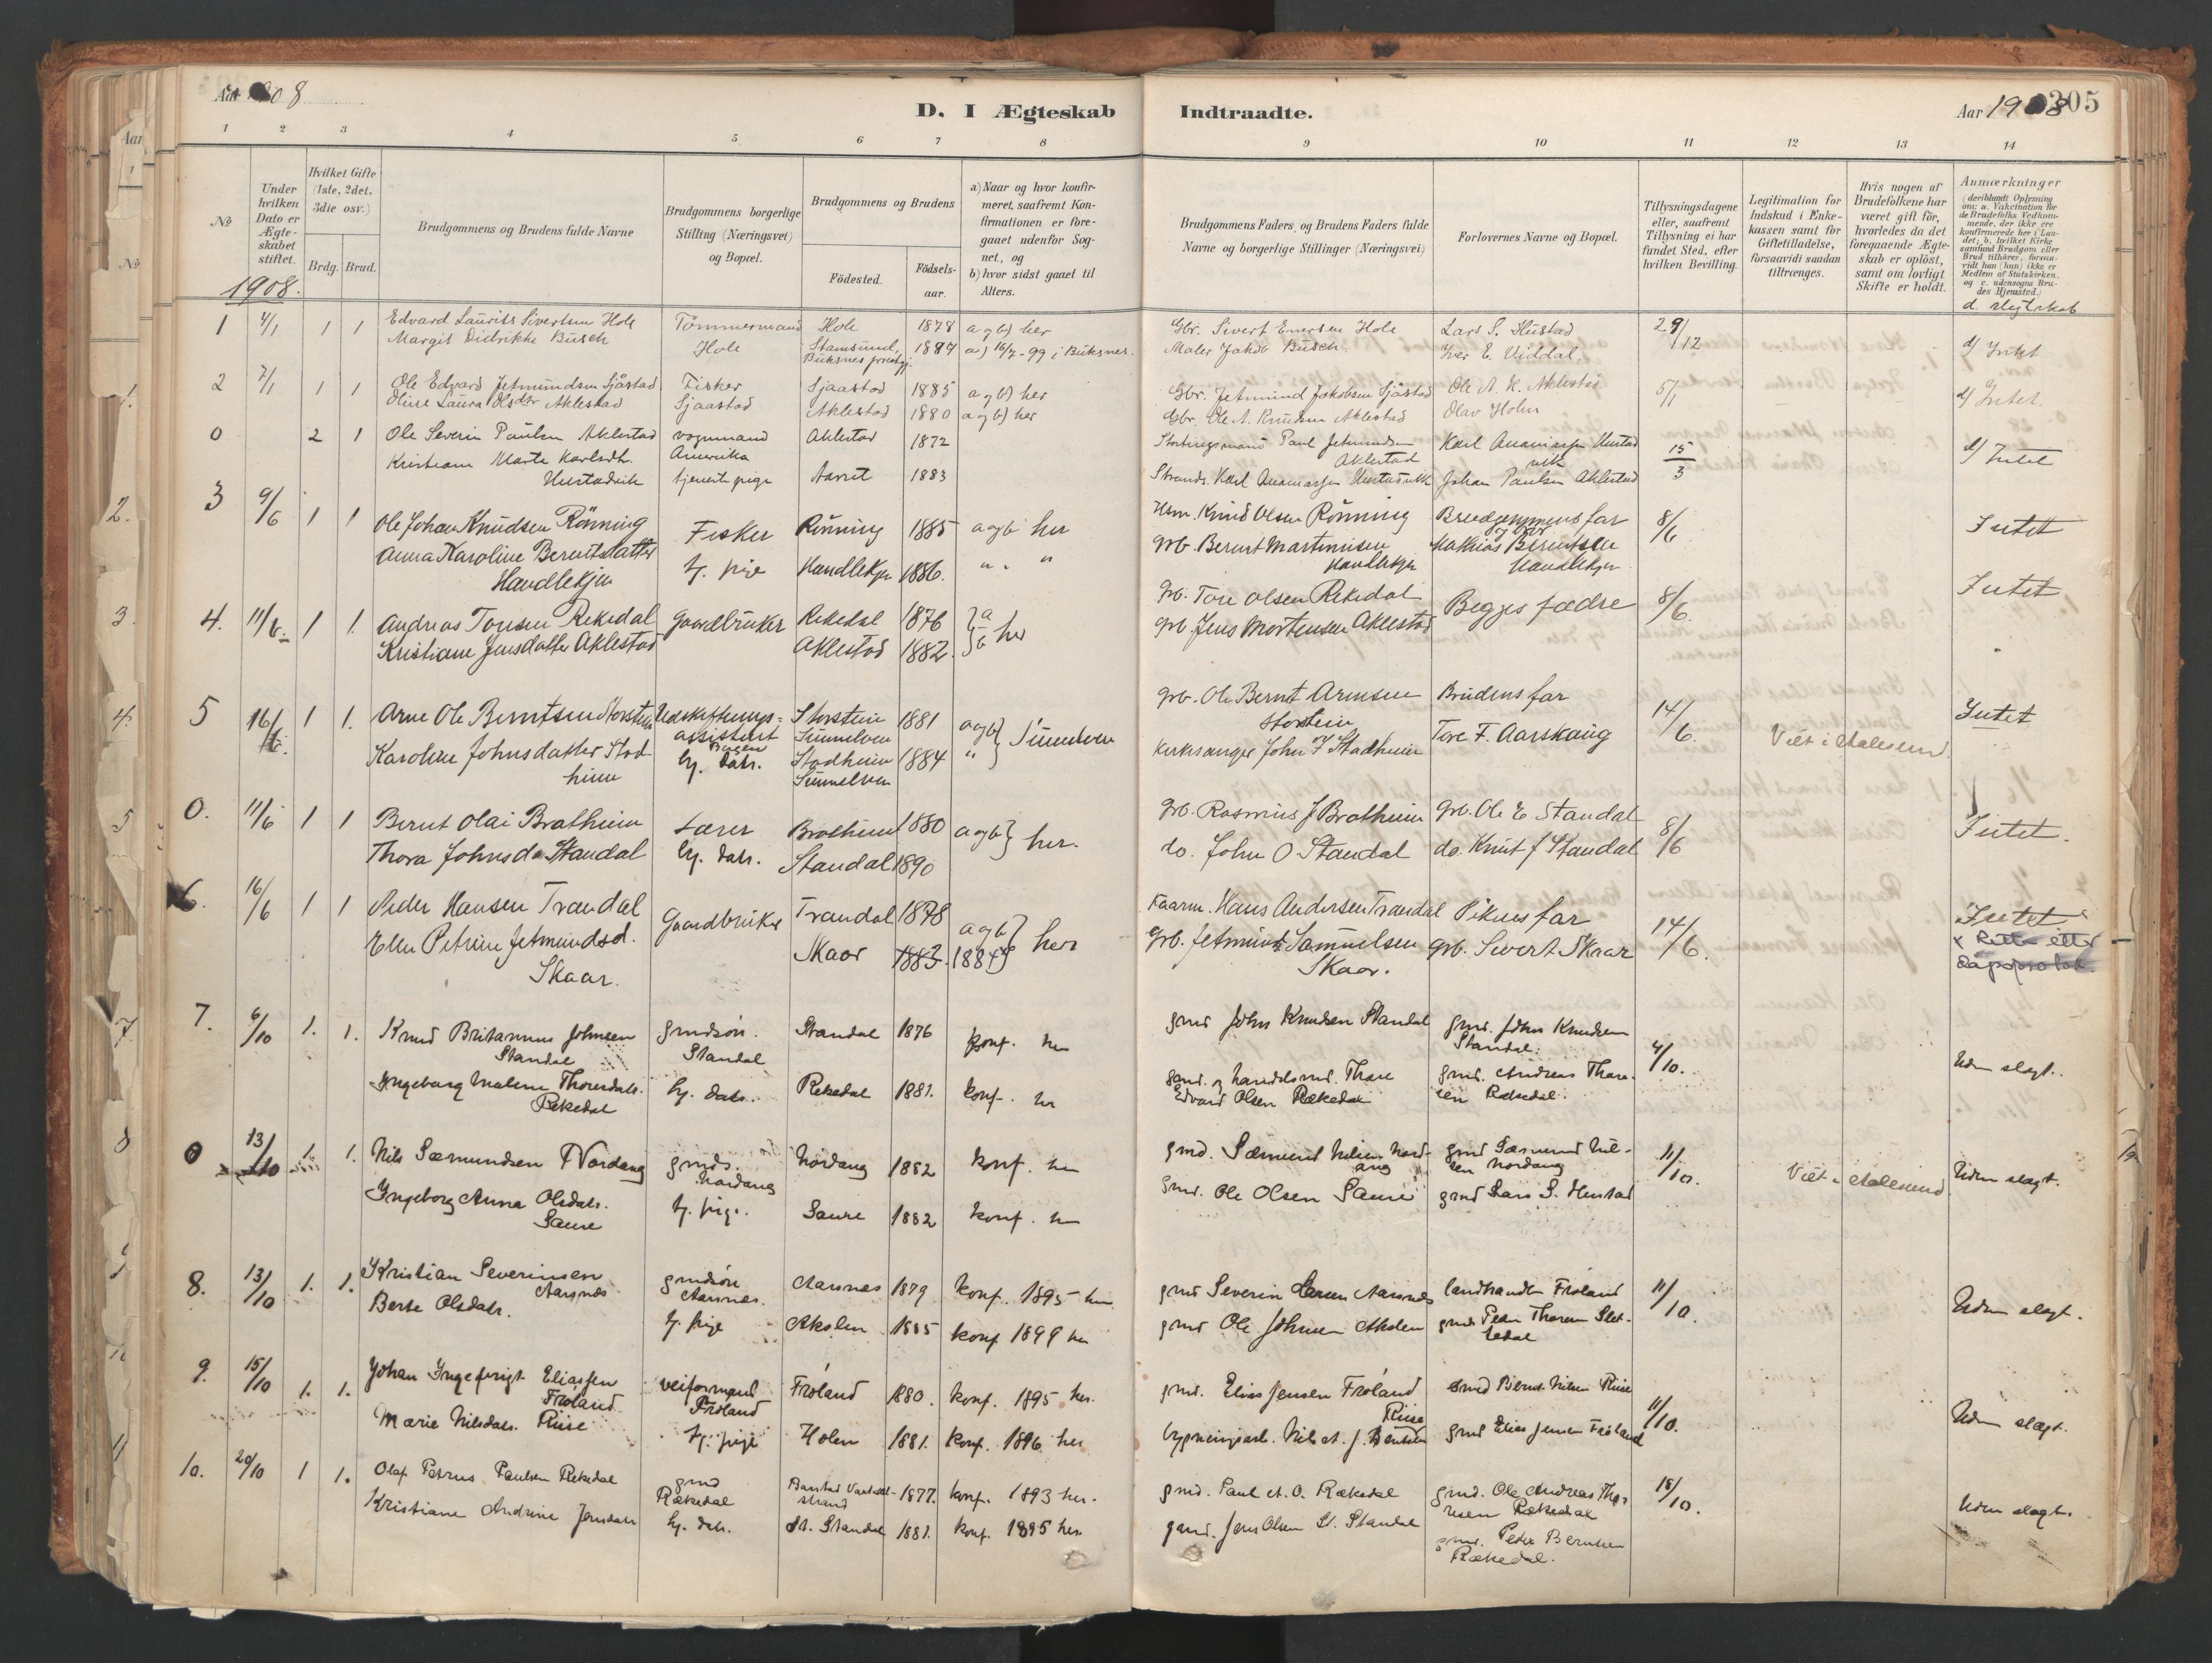 Aar 1908
D. I Ægteskab Indtraadte.
Aar 1908 305
1 2 3 4 5 6 7 8 9 10 11 12 13 14
№
Under hvilken Dato er Ægteskabet stiftet.
Hvilket Gifte (1ste, 2det, 3die osv.)
Brdg. Brud.
Brudgommens og Brudens fulde Navne
Brudgommens borgerlige Stilling (Næringsvei) og Bopæl.
Brudgommens og Brudens
Födested. Födsels-aar.
a) Naar og hvor konfirmeret, saafremt Konfirmationen er foregaaet udenfor Sognet, og
b) hvor sidst gaaet til Alters.
Brudgommens Faders, og Brudens Faders fulde Navne og borgerlige Stillinger (Næringsvei)
Forlovernes Navne og Bopæl.
Tillysningsdagene eller, saafremt Tillysning ei har fundet Sted, efter hvilken Bevilling.
Legitimation for Indskud i Enkekassen samt for Giftetilladelse, forsaavidt saadan tiltrænges.
Hvis nogen af Brudefolkene har været gift för, hvorledes da det foregaaende Ægteskab er oplöst, samt om lovligt Skifte er holdt.
Anmærkninger (deriblandt Oplysning om: a. Vakcination for de Brudefolks Vedkommende, der ikke ere konfirmerede her i Landet; b. hvilket Kirkesamfund Brudgom eller Brud tilhörer, forsaavidt han (hun) ikke er Medlem af Statskirken, og c. udensogns Brudes Hjemsted.)
d. slegtskab
1908.
1 4/1 1 1 Edvard Laurits Sivertsen Hole Tömmermand Hole 1878 a og b) her Gbr. Sivert Enersen Hole Lars S. Hustad 29/12 d) Intet
Margit Didrikke Busch Hole Stamsund, Buksnes præstgj. 1884 a) 16/7-99 i Buksnes. Maler Jakob Busch Iver E. Viddal
2 7/1 1 1 Ole Edvard Jetmundsen Sjåstad Fisker Sjaastad 1885 a og b) her Gbr. Jetmund Jakobsen Sjåstad Ole A. K. Aklestad 5/1 d) Intet.
Oline Laura Olsdtr Aklestad Sjaastad Aklestad 1880 a og b) her Gbr. Ole A. Knudsen Aklestad Olav Holm
0 2 1 Ole Severin Paulsen Aklestad vognmand Aklestad 1872 Stortingsmand Paul Jetmundsen Aklestad Karl Anamiassen Hustadvik 15/3 d) Intet
Kristiane Marte Karlsdt. Hustadvik Amerika tjenestepige 1883 Strands. Karl Anamiassen Hustadvik Johan Paulsen Aklestad
3 9/6 1 1 Ole Johan Knudsen Rönning Fisker Rönning 1885 a og b her Hsm. Knud Olsen Rönning Brudgommens far og 8/6 Intet
Anna Karoline Berntsdatter Handlekjen tj. pige Handlekjen 1886. " " " grb. Bernt Martinusen Handlekjen Mathias Berntsen Handlekjen
4. 11/6 1 1. Andreas Toresen Rekedal Gaardbruker Rekedal 1876 } a her grb. Tore Olsen Rekedal Begges fædre 8/6. Intet
Kristiane Jensdatter Aklestad Aklestad 1882. } b grb. Jens Mortensen Aklestad
5 16/6. 1 1. Arne Ole Berntsen Storstein Udskiftningsassistent Storstein Sunnelven 1881 a og b } Sunnelven grb. Ole Bernt Arnesen Storstein Brudens far 14/6. Viet i Aalesund. Intet
Karoline Johnsdatter Stadheim hj. datr. Stadheim Sunnelven 1884 " Kirkesanger John J Stadheim Tore F. Aarskaug
0. 11/6 1 1 Bernt Olai Bratheim Lærer Bratheim 1880 a og b } her. grb. Rasmus J Bratheim grb. Ole E Standal 8/6 Intet.
Thora Johnsda Standal hj. datr. Standal 1890 do. John O Standal do. Knut J Standal
6. 16/6 1 1 Peder Hansen Trandal Gaardbruker Trandal 1878 a og b } her Kaarm. Hans Andersen Trandal Pikens far 14/6. Intet
Ellen Petrine Jetmundsd. Skaar. Skaar 1883. 1884 grb. Jetmund Samuelsen Skaar. grb. Sivert Skaar
7. 6/10 1. 1. Knud Britanus Johnsen Standal gmdsön. Standal Standal 1876 konf. her gmd John Knudsen Standal gmd. John Knudsen Standal. 4/10. Uden slegt.
Ingeborg Malene Thoresdatr. Rekedal hj. datr. Rekedal 1881. konf. her gmd. og handelsmd. Thore Edvard Olsen Rækedal gmd. Andreas Thoresen Rækedal.
0 13/10 1. 1. Nils Sæmundsen Nordang gmds. Nordang Nordang 1882 konf. her gmd. Sæmund Nilsen Nordang gmd Sæmund Nilsen Nordang 11/10. Viet i Aalesund Uden slegt.
Ingeborg Anna Olsdatr. Saure tj. pige. Saure 1882 konf. her gmd. Ole Olsen Saure gmd Lars S. Hustad
8. 13/10 1. 1. Kristian Severinsen Aarsnes gmdsön Aarsnes. Aarsnes 1879 konf. 1895 her gmd Severin Larsen Aarsnes landhandler Fröland 11/10. Uden slegt.
Berte Olsdatr. tj. pige Aksken 1885 konf 1899 her gmd Ole Johnsen gmd Peder Thoresen Slettedal
9. 15/10 1. 1. Johan Ingebrigt Eliassen Fröland veiformand Fröland Fröland 1880. konf. 1895 her. gmd. Elias Jensen Fröland gmd Bernt Nilsen Riise 11/10. Uden slegt.
Marie Nilsdatr. Riise tj. pige Holen 1881. konf. 1896 her bygningsarb. Nils A. J. Berntsen Riise gmd Elias Jensen Fröland
10. 20/10 1 1. Olaf Petrus Paulsen Rekedal gmd Rækedal Barstad Vartdalstrand 1877. konf. 1893 her. gmd. Paul A. O. Rækedal gmd. Ole Andreas Thoresen Rækedal 18/10. Uden slegt.
Kristiane Andrine Jensdatr hj. datr. St. Standal 1881. konf. 1895 her. gmd. Jens Olsen St. Standal gmd. Peder Berntsen Rækedal.